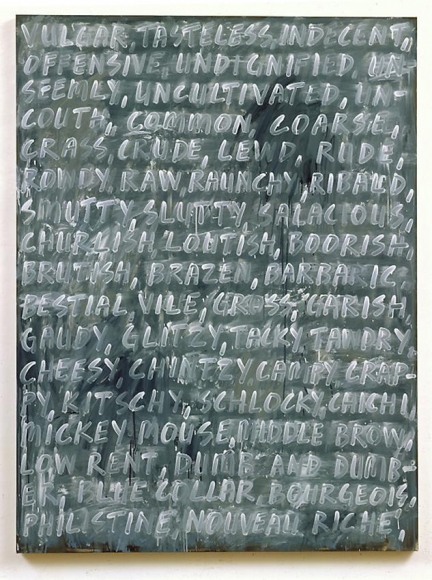 VULGAR, TASTELESS, INDECENT,
OFFENSIVE, UNDIGNIFIED, UN-
SEEMLY, UNCULTIVATED, UN-
COUTH, COMMON, COARSE,
CRASS, CRUDE, LEWD, RUDE,
ROWDY, RAW, RAUNCHY, RIBALD,
SMUTTY, SLUTTY, SALACIOUS,
CHURLISH, LOUTISH, BOORISH,
BRUTISH, BRAZEN, BARBARIC,
BESTIAL, VILE, GROSS, GARISH,
GAUDY, GLITZY, TACKY, TAWDRY,
CHEESY, CHINTZY, CAMPY, CRAP-
PY, KITSCHY, SCHLOCKY, CHICHI,
MICKEY MOUSE, MIDDLE BROW,
LOW RENT, DUMB AND DUMB-
ER, BLUE COLLAR, BOURGEOIS,
PHILISTINE, NOUVEAU RICHE,